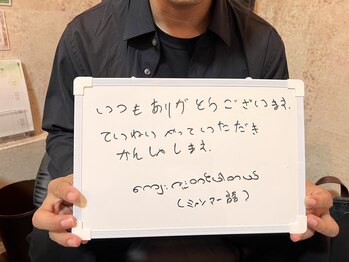 いつもありがとうございます.
ていねいにやっていただき
かんしゃします.
ကျေးဇူးတင်ပါတယ်
(ミャンマー語)